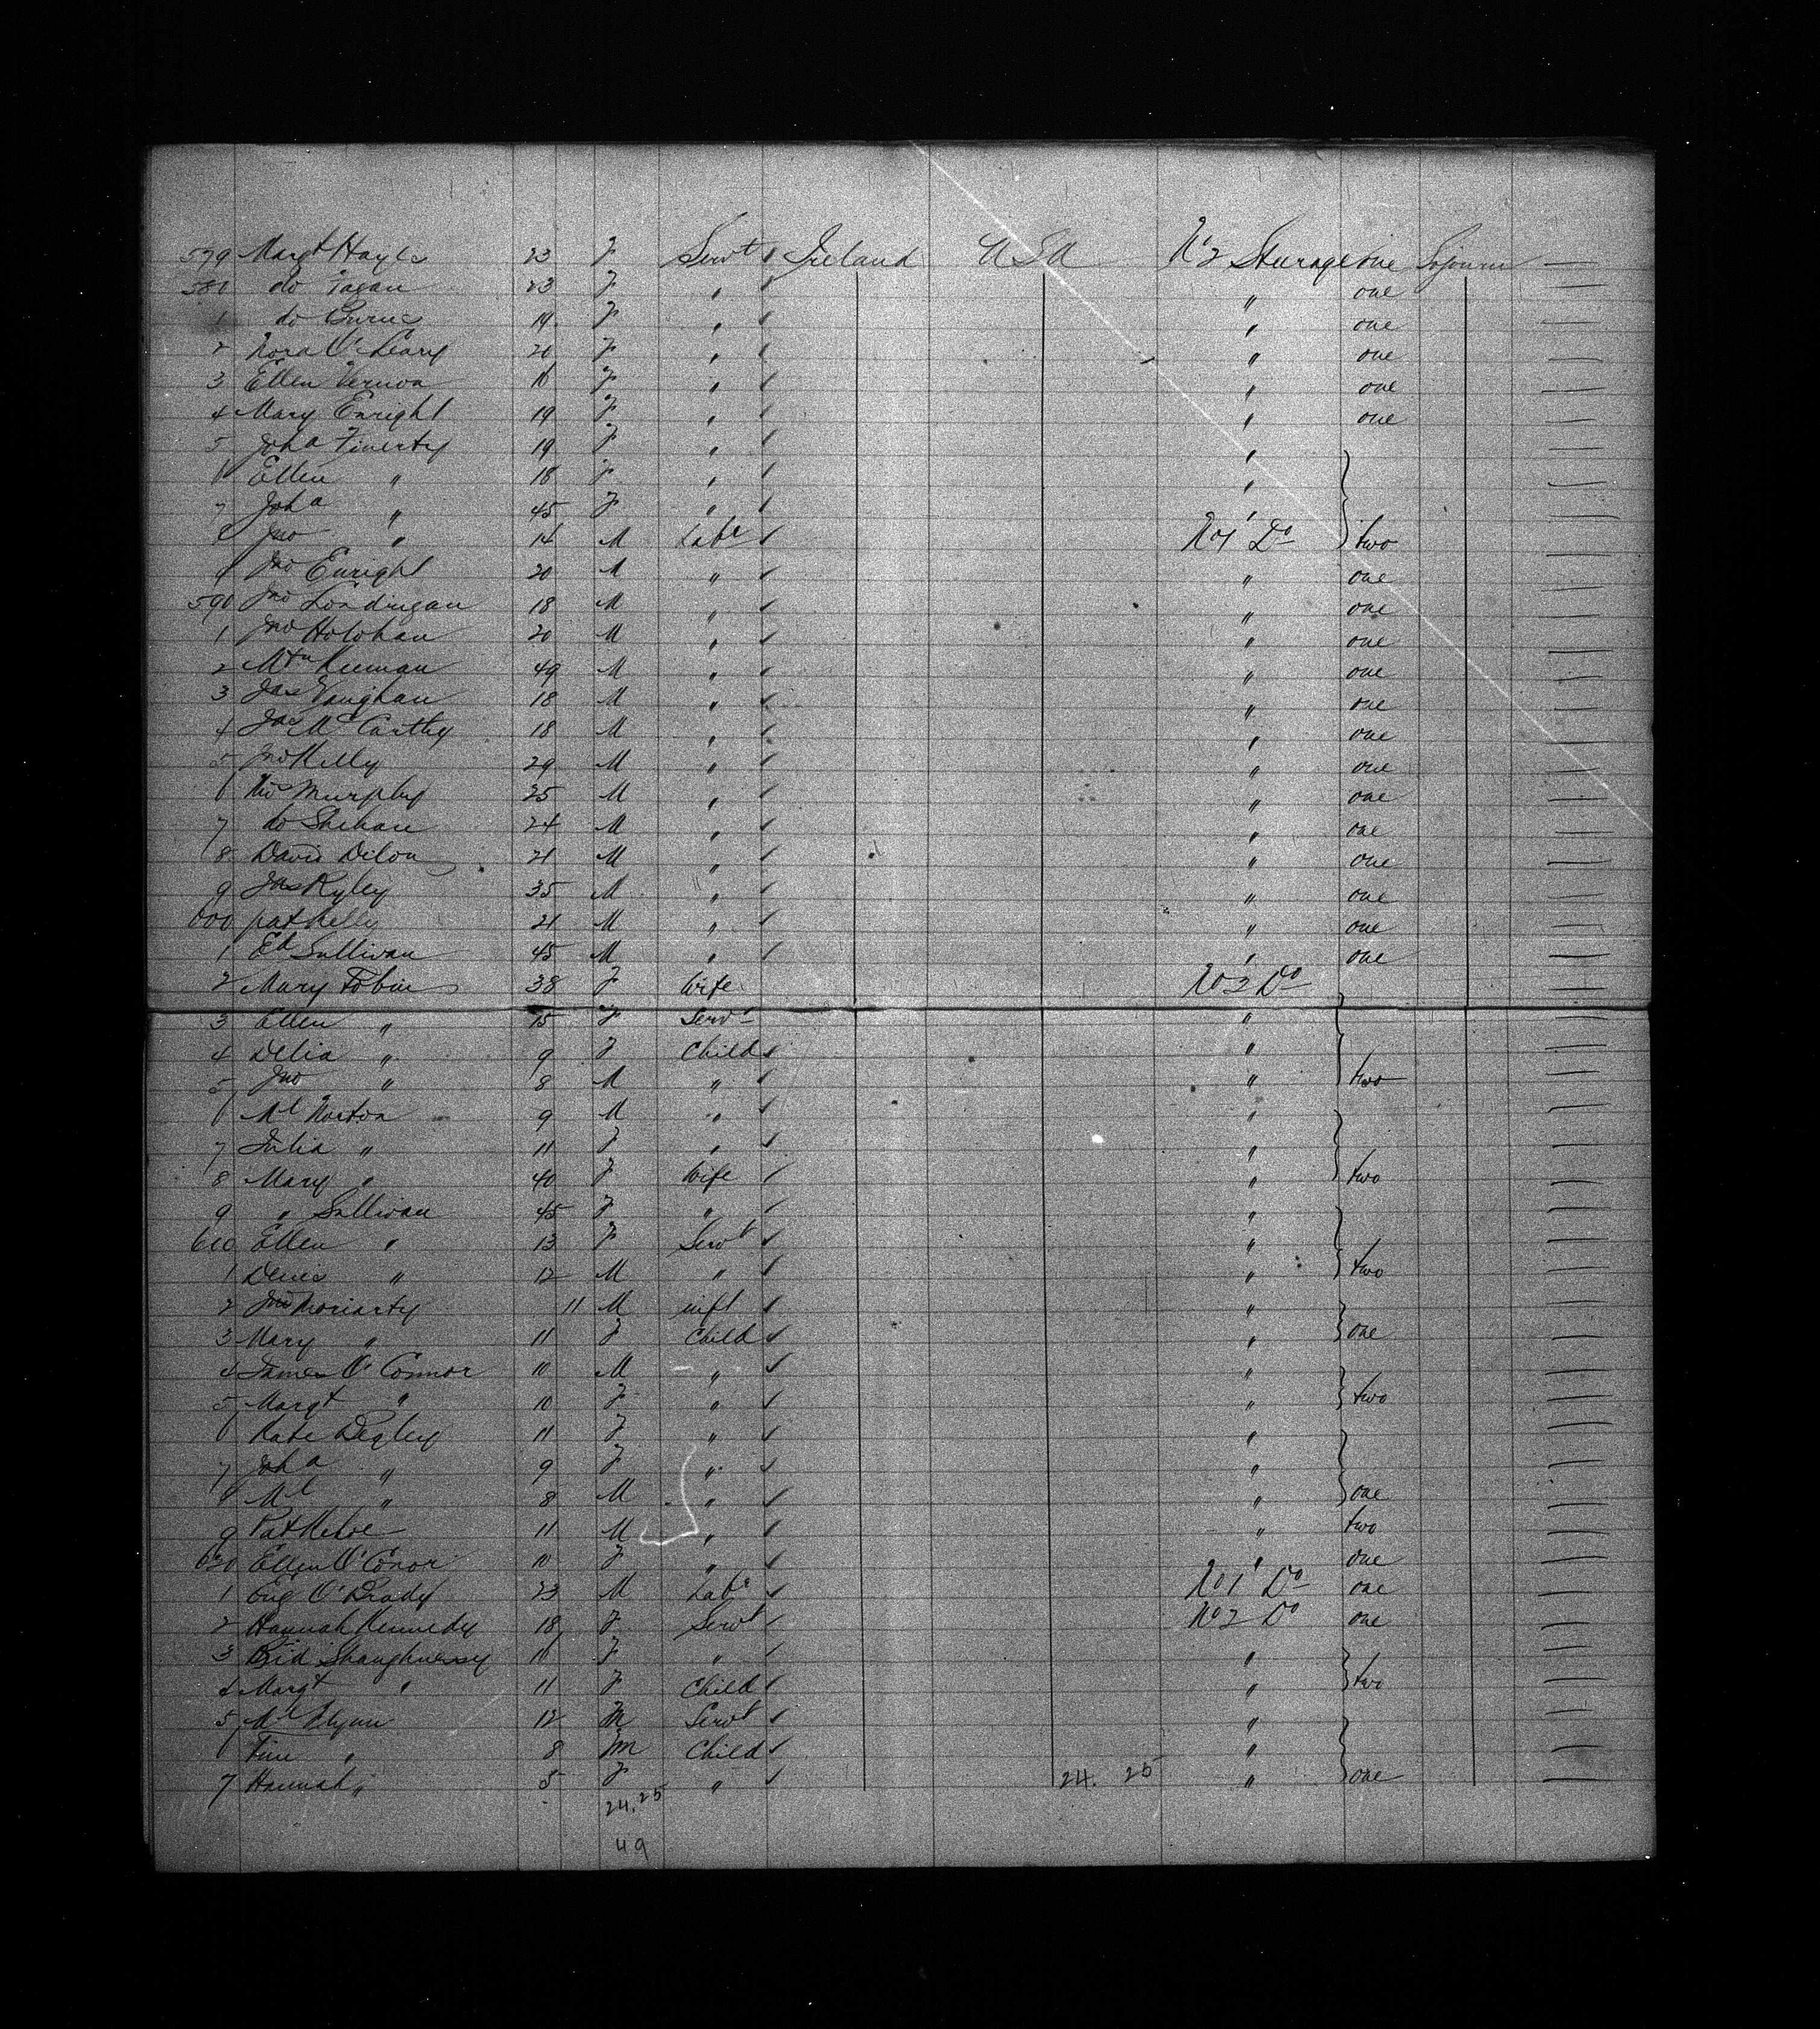 579 Margt Hayes 23 F Servt Ireland USA No 2 Steerage one Sojourn —
580 do Fagan 23 F " " one —
1 do Burns 19 F " " one —
2 Nora O'Leary 21 F " " one —
3 Ellen Vernon 16 F " " one —
4 Mary Enright 19 F " " one —
5 Joha Finerty 19 F " " —
6 Ellen " 18 F " " —
7 Joha " 45 F " " —
8 Jno " 14 M Labr No 1 Do two —
9 Jno Enright 20 M " " one —
590 Jno Londrigan 18 M " " one —
1 Jno Holohan 20 M " " one —
2 Mtn 49 M " " one —
3 Jas Vaughan 18 M " " one —
4 Jas McCarthy 18 M " " one —
5 Jno Kelly 29 M " " one —
6 Murphy 25 M " " one —
7 do Shehan 24 M " " one —
8 David Dilon 21 M " " one —
9 Jas Ryley 35 M " " one —
600 Pat Kelly 21 M " " one —
1 Ed Sullivan 45 M " " one —
2 Mary Tobin 38 F Wife No 3 Do —
3 Ellen " 15 F Servt " —
4 Delia " 9 F Child " —
5 Jno " 8 M " " two —
6 Ml Norton 9 M " " —
7 Julia " 11 F " " —
8 Mary " 40 F Wife " two —
9 " Sullivan 45 F " " —
610 Ellen " 13 F Servt " —
1 Denis " 12 M " " two —
2 Jno Moriarty 11 M inft " —
3 Mary " 11 F Child " one —
4 James O'Connor 10 M " " —
5 Margt " 10 F " " two —
6 Kate Degley 11 F " " —
7 Joha " 9 F " " —
8 Ml " 8 M " " one —
9 Pat Kehoe 11 M " " two —
620 Ellen O'Conor 10 F " " one —
1 Eug O'Brady 23 M Labr No 1 Do one —
2 Hannah Kennedy 18 F Servt No 2 Do one —
3 Bid Shaughnessy 16 F " " —
4 Margt " 11 F Child " two —
5 Ml Flynn 12 M Servt " —
6 Tim " 8 M Child " —
7 Hannah " 5 F " 24. 25 " one —
24.25
49